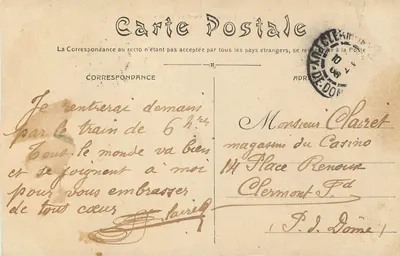 Carte Postale
La Correspondance au recto n'étant pas acceptée par tous les pays étrangers, se renseigner à la Poste
CORRESPONDANCE
Je rentrerai demain
par le train de 6 hres
Tout le monde va bien
et se joignent à moi
pour vous embrasser
de tous cœur
Clairet
ADR
Monsieur Clairet
magasins du Casino
14 Place Renoux
Clermont Fd
(P. d. Dôme)
CLERMONT
PUY-DE-DOME
10
08